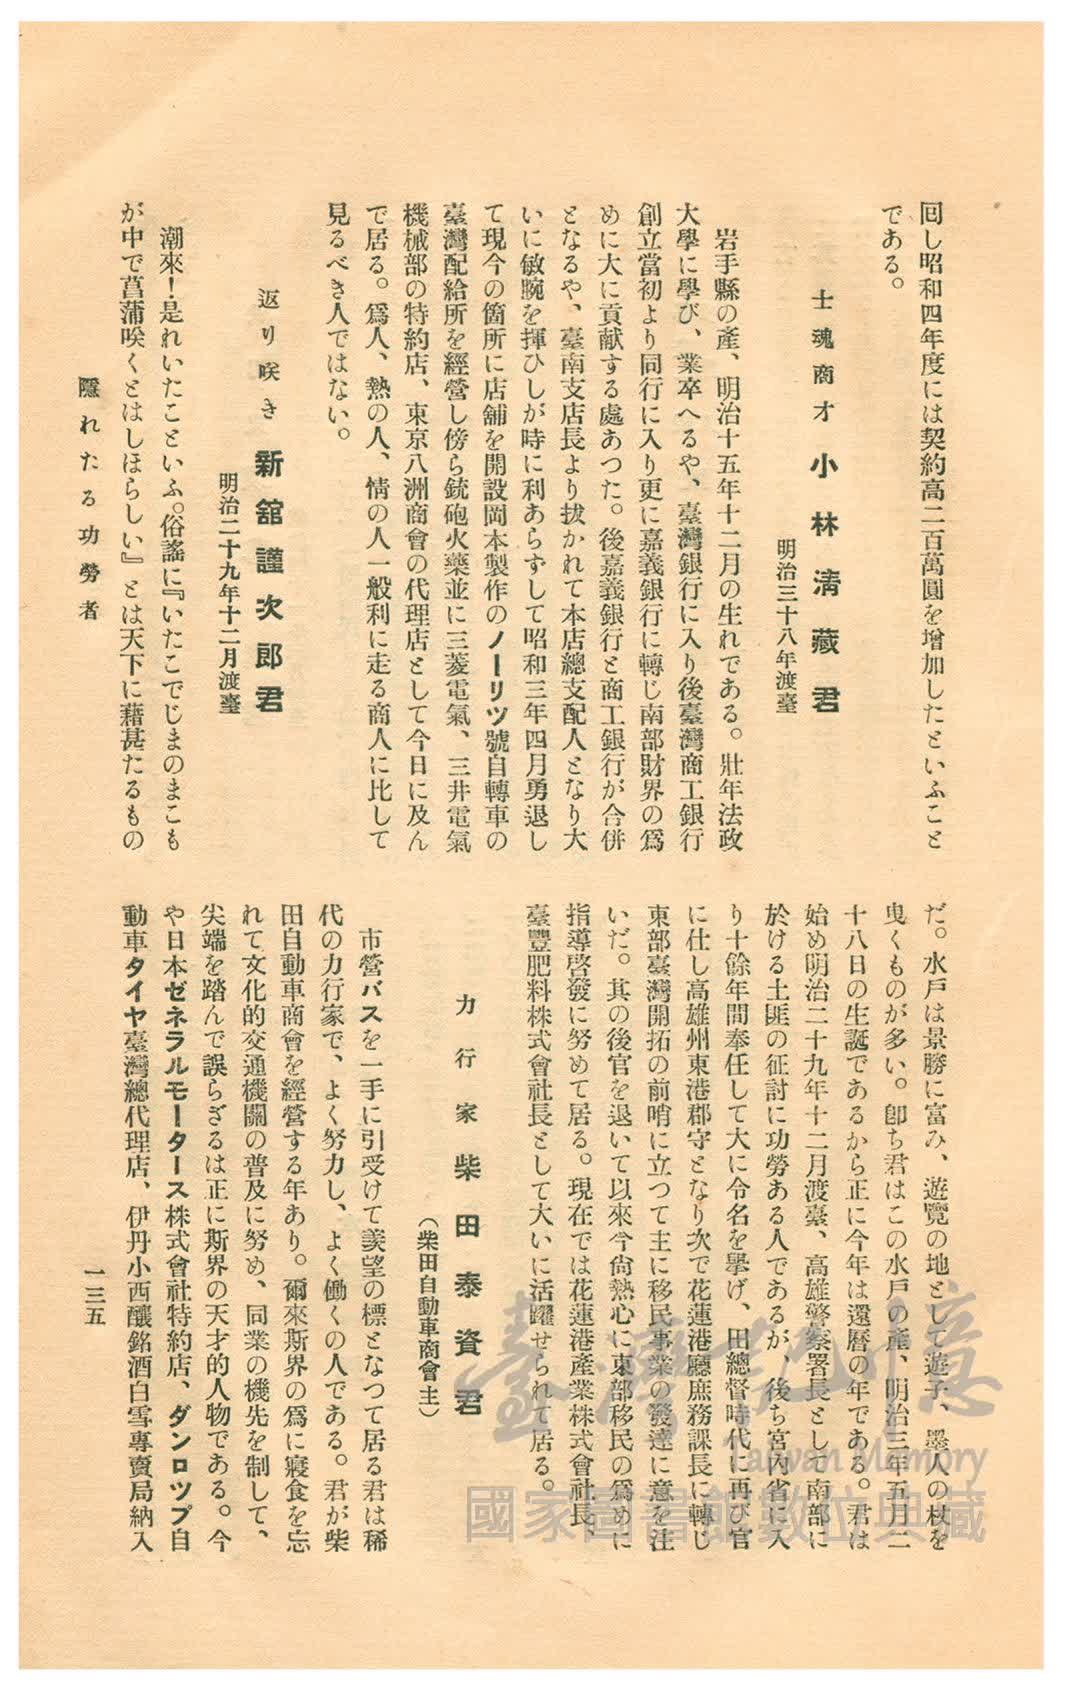 囘し昭和四年度には契約高二百萬圓を增加したといふこと
である。
士魂商才 小林淸藏君
明治三十八年渡臺
岩手縣の產、明治十五年十二月の生れである。壯年法政
大學に學び、業卒へるや、臺灣銀行に入り後臺灣商工銀行
創立當初より同行に入り更に嘉義銀行に轉じ南部財界の爲
めに大に貢献する處あつた。後嘉義銀行と商工銀行が合併
となるや、臺南支店長より拔かれて本店總支配人となり大
いに敏腕を揮ひしが時に利あらずして昭和三年四月勇退し
て現今の箇所に店舖を開設岡本製作のノーリツ號自轉車の
臺灣配給所を經營し傍ら銃砲火藥並に三菱電氣、三井電氣
機械部の特約店、東京八洲商會の代理店として今日に及ん
で居る。爲人、熱の人、情の人一般利に走る商人に比して
見るべき人ではない。
返り咲き 新舘謹次郎君
明治二十九年十二月渡臺
潮來！是れいたこといふ。俗謠に『いたこでじまのまこも
が中で菖蒲咲くとはしほらしい』とは天下に藉甚たるもの
隱れたる功勞者
だ。水戶は景勝に富み、遊覽の地として遊子、墨人の杖を
曳くものが多い。卽ち君はこの水戶の產、明治三年五月二
十八日の生誕であるから正に今年は還暦の年である。君は
始め明治二十九年十二月渡臺、高雄警察署長として南部に
於ける土匪の征討に功勞ある人であるが、後ち宮內省に入
り十餘年間奉任して大に令名を擧げ、田總督時代に再び官
に仕し高雄州東港郡守となり次で花蓮港廳庶務課長に轉じ
東部臺灣開拓の前哨に立つて主に移民事業の發達に意を注
いだ。其の後官を退いて以來今尙熱心に東部移民の爲めに
指導啓發に努めて居る。現在では花蓮港產業株式會社長、
臺豐肥料株式會社長として大いに活躍せられて居る。
力行家 柴田泰資君
（柴田自動車商會主）
市營バスを一手に引受けて羨望の標となつて居る君は稀
代の力行家で、よく努力し、よく働くの人である。君が柴
田自動車商會を經營する年あり。爾來斯界の爲に寢食を忘
れて文化的交通機關の普及に努め、同業の機先を制して、
尖端を踏んで誤らざるは正に斯界の天才的人物である。今
や日本ゼネラルモータース株式會社特約店、ダンロツプ自
動車タイヤ臺灣總代理店、伊丹小西釀銘酒白雪專賣局納入
一三五
臺灣記憶
Taiwan Memory
國家圖書館數位典藏